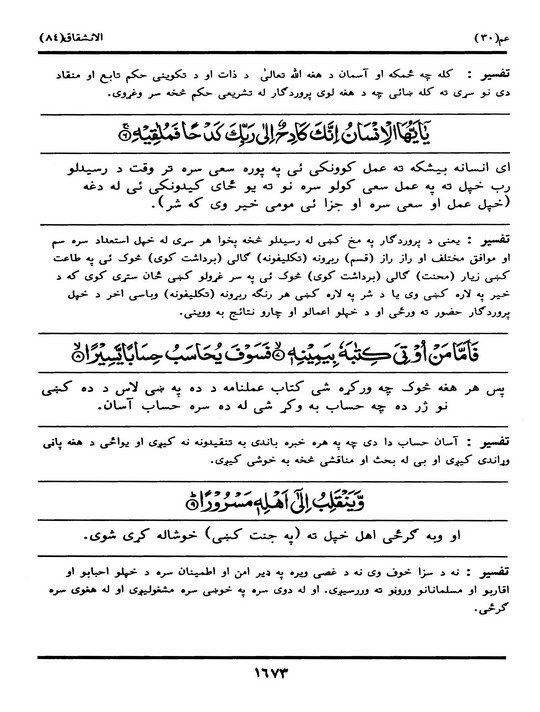 عم(٣٠)
الانشقاق(٨٤)
تفسير : کله چه ځمکه او آسمان د هغه الله تعالیٰ د ذات او د تکوينی حکم تابع او منقاد
دی نو سړی ته کله ښائی چه د هغه لوی پروردگار له تشريعی حکم څخه سر وغړوی.
يٰۤاَيُّهَا الْاِنْسَانُ اِنَّكَ كَادِحٌ اِلٰى رَبِّكَ كَدْحًا فَمُلٰقِيْهِ ۚ ﴿٦﴾
ای انسانه بيشکه ته عمل کوونکی ئی په پوره سعی سره تر وقت د رسيدلو
رب خپل ته په عمل سعی کولو سره نو ته يو ځای کيدونکی ئی له دغه
(خپل عمل او سعی سره او جزا ئی مومی خير وی که شر).
تفسير : يعنی د پروردگار په مخ کښی له رسيدلو څخه پخوا هر سړی له خپل استعداد سره سم
او موافق مختلف او راز راز (قسم) ربړونه (تکليفونه) گالی (برداشت کوی) څوک ئی په طاعت
کښی زيار (محنت) گالی (برداشت کوی) څوک ئی په سر غړولو کښی ځان ستړی کوی که د
خير په لاره کښی وی يا د شر په لاره کښی هر رنگه ربړونه (تکليفونه) وباسی اخر د خپل
پروردگار حضور ته ورځی او د خپلو اعمالو او چارو نتائج به ووينی.
فَاَمَّا مَنْ اُوْتِىَ كِتٰبَهٗ بِيَمِيْنِهٖ ۙ ﴿٧﴾ فَسَوْفَ يُحَاسَبُ حِسَابًا يَّسِيْرًا ۙ ﴿٨﴾
پس هر هغه څوک چه ورکړه شی کتاب عملنامه د ده په ښی لاس د ده کښی
نو ژر ده چه حساب به وکړ شی له ده سره حساب آسان.
تفسير : آسان حساب دا دی چه په هره خبره باندی به تنقيدونه نه کيږی او يواځی د هغه پاڼی
وړاندی کيږی او بی له بحث او مناقشی څخه به خوشی کيږی.
وَّيَنْقَلِبُ اِلٰٓى اَهْلِهٖ مَسْرُوْرًا ؕ ﴿٩﴾
او وبه گرځی اهل خپل ته (په جنت کښی) خوشاله کړی شوی.
تفسير : نه د سزا خوف وی نه د غصی ويره په ډير امن او اطمينان سره د خپلو احبابو او
اقاربو او مسلمانانو وروڼو ته وررسيږی. او له دوی سره په خوښی سره مشغوليږی او له هغوی سره
گرځی.
١٦٧٣